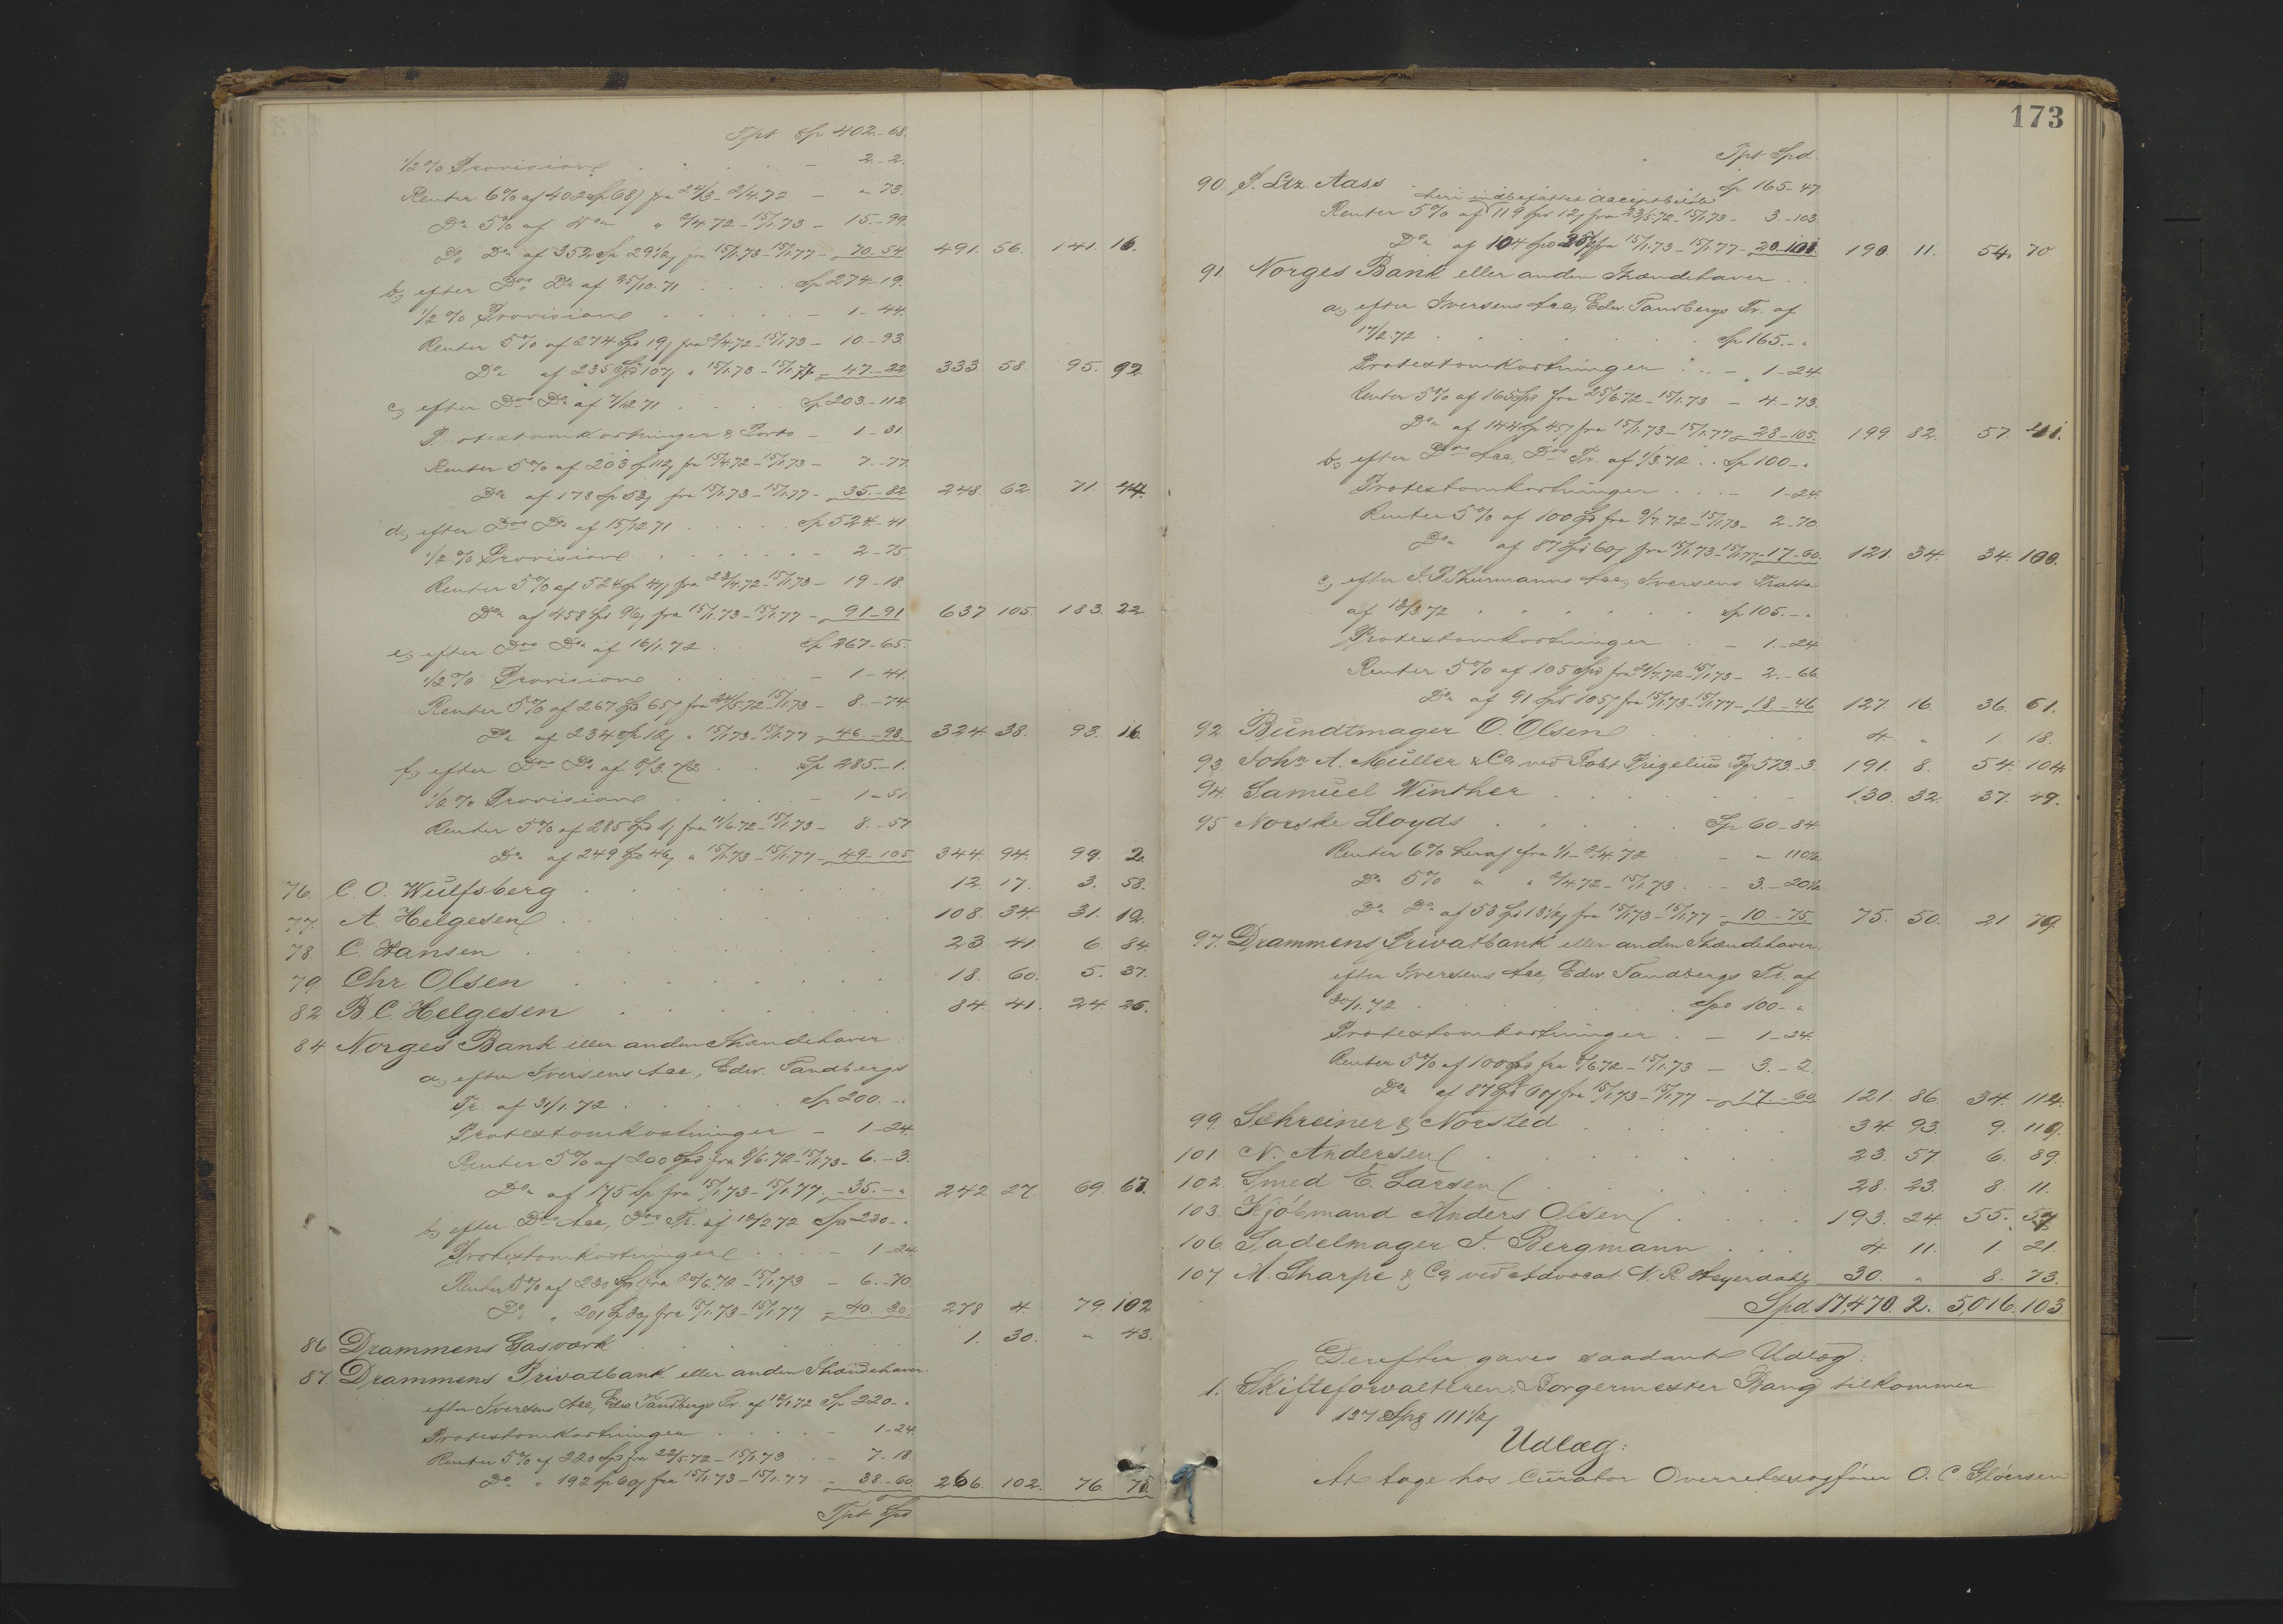 Tpt Sp 402-68.
1/2 % Provision . . . . . - 2-2.
Renter 6% af 402 Sp 68/ fra 24/3-2/4.72 - " 73.
Do 5% af Do " 2/4.72-15/1.73 - 15.-99.
Do Do af 352 Sp 29 1/2/ fra 15/1.73-15/1.77 - 70-54 491. 56. 141. 16.
b, efter Dos Do af 25/10.71 . . . . Sp 274-19.
1/2 % Provision . . . . . - 1-44.
Renter 5% af 274 Spd 19/ fra 2/4.72-15/1.73 - 10-93.
Do af 235 Spd 107/ " 15/1.73-15/1.77 - 47-22 333 58 95. 92.
c, efter Dos Do af 7/12.71 . . . . Sp 203.-112.
Protestomkostninger & Porto - 1-31
Renter 5% af 203 Sp 112/ fra 15/4.72-15/1.73 - 7.-77.
Do af 178 Sp 53/ fra 15/1.73-15/1.77 - 35.-82 248. 62. 71 44.
d, efter Dos Do af 15/12.71 . . . . Sp 524.-41
1/2 % Provision . . . . . - 2-75
Renter 5% af 524 Sp 41/ fra 23/4.72-15/1.73 - 19-18.
Do af 458 Spd 96/ fra 15/1.73-15/1.77 - 91-91 637 105. 183. 22
e, efter Dos Do af 16/1.72 . . Sp 267-65.
1/2 % Provision . . . . - 1-41.
Renter 5% af 267 Spd 65/ fra 24/5.72-15/1.73 - 8.-74.
Do af 234 Sp 12/ " 15/1.73-15/1.77 - 46.-93. 324 38. 93. 16.
f, efter Dos Do af 8/3.72 . . Sp 285.-1.
1/2 % Provision . . . . - 1-51.
Renter 5% af 285 Spd 1/ fra 11/6.72-15/1.73 - 8.-57
Do af 249 Spd 46/ " 15/1.73-15/1.77 - 49-105 344. 94. 99. 2.
76. C. O. Wülfsberg . . . . . 12. 17. 3. 58.
77. A. Helgesen . . . . . 108. 34. 31. 19.
78. C. Hansen . . . . . 23. 41. 6. 84.
79. Chr. Olsen . . . . . 18. 60. 5. 37.
82 B. C. Helgesen . . . . . 84. 41. 24. 26.
84 Norges Bank eller anden Ihændehaver:
a, efter Iversens Acc, Edw. Tandbergs
Tr. af 31/1.72 . . . . Sp 200.-"
Protestomkostninger - 1-24.
Renter 5% af 200 Spd fra 8/6.72-15/1.73 - 6.-3.
Do af 175 Sp fra 15/1.73-15/1.77. - 35.-" 242 27. 69. 67.
b, efter Dos Acc, Dos Tr. af 12/2.72 Spd 230-"
Protestomkostninger . . . - 1-24
Renter 5% af 230 Sp fra 20/6.72-15/1.73 - 6.-70.
Do " 201 Sp 30/ fra 15/1.73-15/1.77 - 40.30. 278 4. 79. 102
86 Drammens Gasværk . . . . . 1. 30. " 43.
87. Drammens Privatbank eller anden Ihændehaver:
efter Iversens Acc, Edw. Tandbergs Tr. af 12/1.72 Sp 220-"
Protestomkostninger . . . . - 1-24
Renter 5% af 220 Spd fra 22/5.72-15/1.73 . . - 7-18.
Do " 192 Sp 60/ fra 15/1.73-15/1.77 - 38.-60. 266. 102. 76. 75.
Tpt Spd
173
Tpt Spd.
90. P. Ltz. Aass . . . Sp 165-47
heri indbefattet Acceptbeløb
Renter 5% af 119 Spd 12/ fra 23/5.72-15/1.73 - 3.-103.
Do af 104 Spd 25/ fra 15/1.73-15/1.77 - 20-101. 190. 11. 54. 70
91. Norges Bank eller anden Ihændehaver . .
a, efter Iversens Acc, Edw. Tandbergs Tr. af
17/2.72 . . . . . Sp 165.-"
Protestomkostninger . . - 1-24.
Renter 5% af 165 Spd fra 25/6.72-15/1.73 - 4.-73.
Do af 144 Sp 45/ fra 15/1.73-15/1.77 - 28-105. 199 82. 57. 41.
b, efter Dos Acc, Dos Tr. af 1/3.72 . . Sp 100-"
Protestomkostninger . . . - 1-24.
Renter 5% af 100 Spd fra 9/7.72-15/1.73 - 2-70.
Do af 87 Spd 60/ fra 15/1.73-15/1.77 - 17-60. 121. 34. 34. 100.
c, efter J. P. Thurmanns Acc, Iversens Tratte
af 13/3.72 . . . . . Sp 105.-"
Protestomkostninger . . - 1.-24
Renter 5% af 105 Spd fra 21/7.72-15/1.73 - 2.-66.
Do af 91 Spd 105/ fra 15/1.73-15/1.77 - 18-46 127. 16. 36. 61.
92. Bundtmager O. Olsen . . . . . 4. " 1. 18.
93. Johs A. Müller & Co ved Robt Prizelius 573-3. 191. 8. 54. 104.
94. Samuel Winther . . . . . 130. 32. 37. 49.
95 Norske Lloyds . . . . . Sp 60-84.
Renter 6% heraf fra 1/1-2/4.72 . - " 110 1/2
Do 5% " " 2/4.72-15/1.73 . . - 3.-20 1/2
Do Do af 53 Spd 13 1/2/ fra 15/1.73-15/1.77 - 10.-75. 75. 50. 21. 79.
97. Drammens Privatbank eller anden Ihændehaver.
efter Iversens Acc, Edw. Tandbergs Tr. af
20/1.72 . . . . . Spd 100-"
Protestomkostninger . . - 1-24.
Renter 5% af 100 Spd fra 8/6.72-15/1.73 - 3.-2.
Do af 87 Spd 60/ fra 15/1.73-15/1.77 - 17.-60 121. 86. 34. 114.
99. Schreiner & Norsted . . . . . 34 93. 9. 119.
101. N. Andersen . . . . . 23. 57. 6. 89.
102. Smed E. Larsen . . . . . 28. 23. 8. 11.
103. Kjøbmand Anders Olsen . . . . 193. 24. 55. 57
106. Sadelmager J. Bergmann . . . 4. 11. 1. 21.
107 M. Sharpe & Co ved Advocat N. R. Heyerdahl 30. " 8. 73.
Spd 17,470. 2. 5,016. 103.
Derefter gaves saadant Udlæg:
1. Skifteforvalteren, Borgermester Bang tilkommer
127 Spd 111 1/2/
Udlæg:
At tage hos Curator Overretssagfører O. C. Gløersen